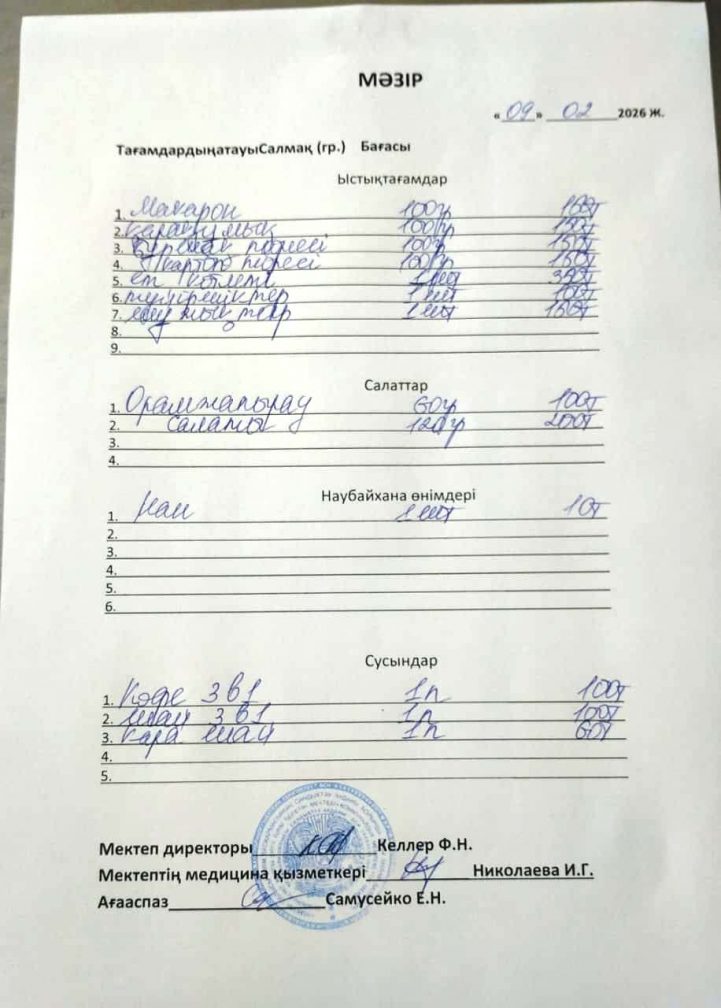 МӘЗІР
« 09 » 02 2026 ж.
ТағамдардыңатауыСалмақ (гр.) Бағасы
Ыстықтағамдар
1. Макарон 100гр 150т
2. қарақұмық 100гр 150т
3. Бұршақ пюресі 100гр 150т
4. Картоп пюресі 100гр 150т
5. ет котлеті 1 шт
6. 1 шт 100т
7. 1 шт 150т
8.
9.
Салаттар
1. Орамжапырақ 60гр 100т
2. Салаты 120гр 200т
3.
4.
Наубайхана өнімдері
1. Нан 1 шт 10т
2.
3.
4.
5.
6.
Сусындар
1. Кофе 3в1 1п 100т
2. шай 3в1 1п 100т
3. Кара шай 1п 60т
4.
5.
Мектеп директоры Келлер Ф.Н.
Мектептің медицина қызметкері Николаева И.Г.
Ағааспаз Самусейко Е.Н.